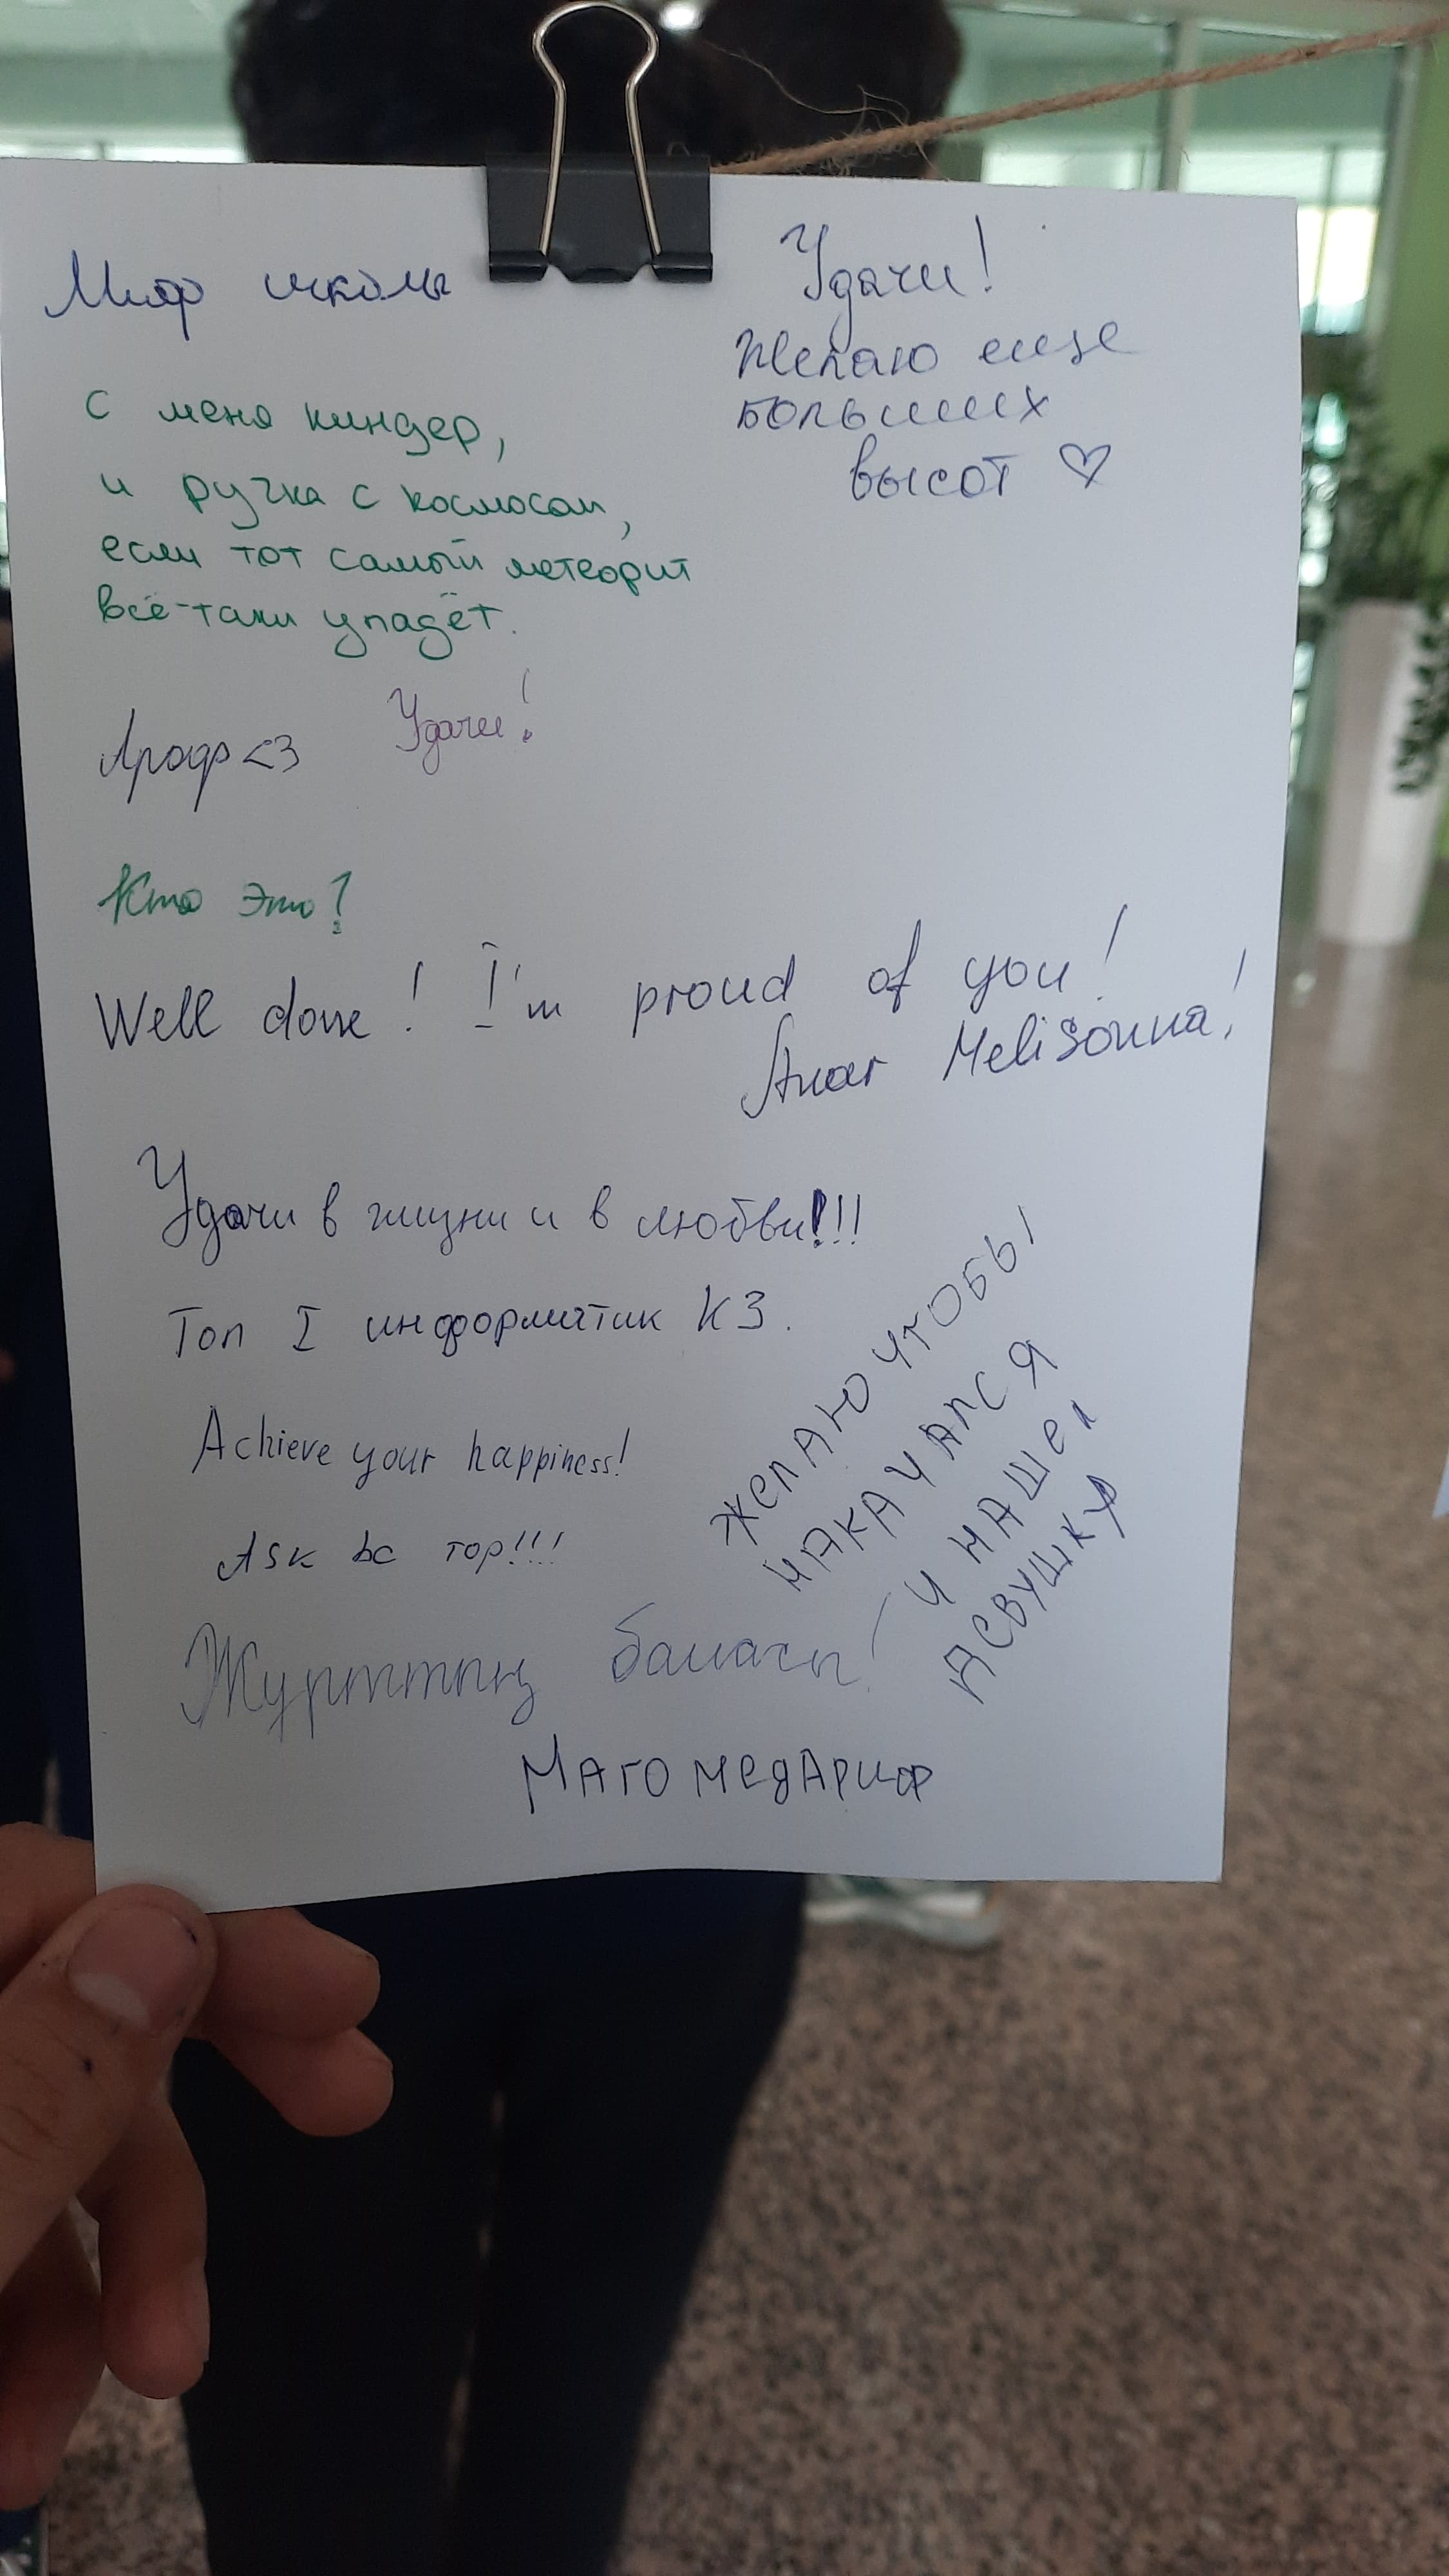 Миф школы
Удачи!
Желаю еще
больших
высот ♡
с меня киндер,
и ручка с космосом,
если тот самый метеорит
всё-таки упадёт.
Удачи!
Ароф <3
Кто это?
Well done! I'm proud of you!
Anar Melisovna!
Удачи в жизни и в любви!!!
Топ 1 информатик КЗ.
Achieve your happiness!
Ask bc top!!!
ЖЕЛАЮ ЧТОБЫ
НАКАЧАЛСЯ
И НАШЕЛ
ДЕВУШКУ
Журттың баласы!
МагомедАриф